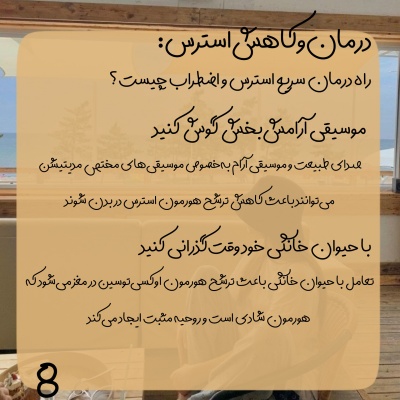 درمان و کاهش استرس:
راه درمان سریع استرس و اضطراب چیست؟
موسیقی آرامش بخش گوش کنید
صدای طبیعت و موسیقی آرام به‌خصوص موسیقی‌های مختص مدیتیشن
می‌توانند باعث کاهش ترشح هورمون استرس در بدن شوند
با حیوان خانگی خود وقت گذرانی کنید
تعامل با حیوان خانگی باعث ترشح هورمون اوکسی توسین در مغز می‌شود که
هورمون شادی است و روحیه مثبت ایجاد می‌کند
8